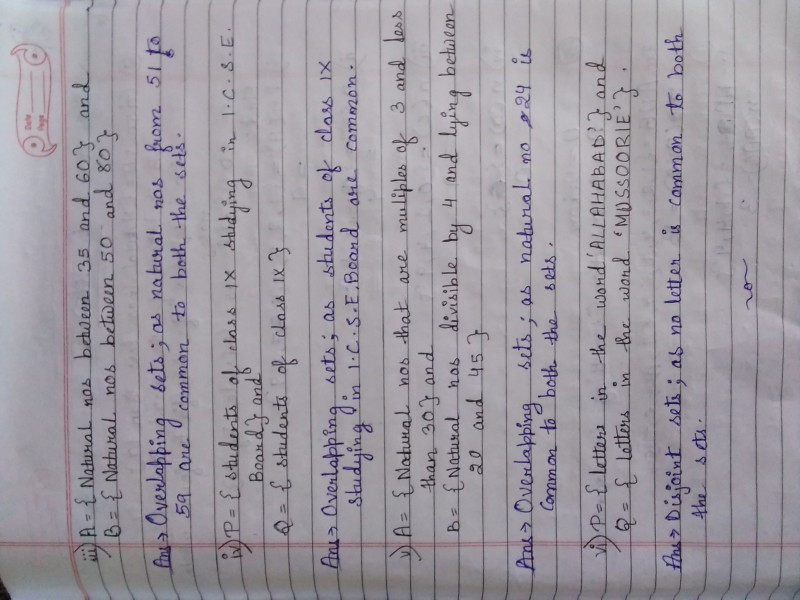 Date
Page
iii) A = { Natural nos between 35 and 60 } and
B = { Natural nos between 50 and 80 }
Ans → Overlapping sets ; as natural nos from 51 to
59 are common to both the sets.
iv) P = { students of class IX studying in I.C.S.E.
Board } and
Q = { students of class IX }
Ans → Overlapping sets ; as students of class IX
studying in I.C.S.E. Board are common.
v) A = { Natural nos that are muliples of 3 and less
than 30 } and
B = { Natural nos divisible by 4 and lying between
20 and 45 }
Ans → Overlapping sets ; as natural no 24 is
common to both the sets.
vi) P = { letters in the word 'ALLAHABAD' } and
Q = { letters in the word 'MUSSOORIE' } .
Ans → Disjoint sets ; as no letter is common to both
the sets.